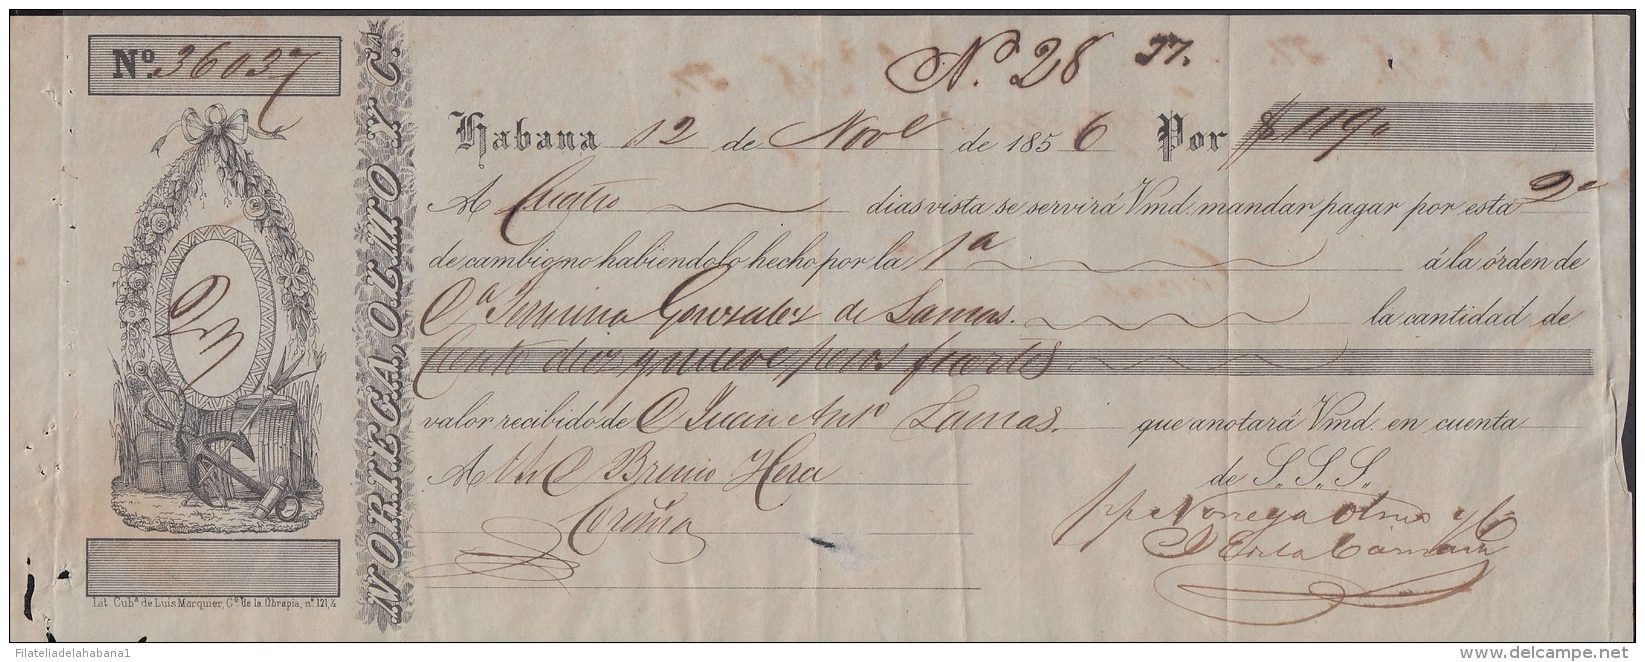 Nº 36037
NORIEGA, OLMO Y Cª
Nº 28 37.
Habana 12 de Nove de 1856 Por $ 119 "
A Cuatro dias vista se servirá Vmd. mandar pagar por esta 2ª
de cambio no habiendolo hecho por la 1ª á la órden de
Dª Gonzalez de Lamas. la cantidad de
Ciento diez y nueve pesos fuertes
valor recibido de D Juan Antº Lamas. que anotará Vmd. en cuenta
A D Bruno Hera de S. S. S.
Coruña
pp Noriega Olmo y Cª
Lit. Cubª de Luis Marquier, Cª de la Obrapia, nº 121,¼
Filateliadelahabana1
delcampe.net